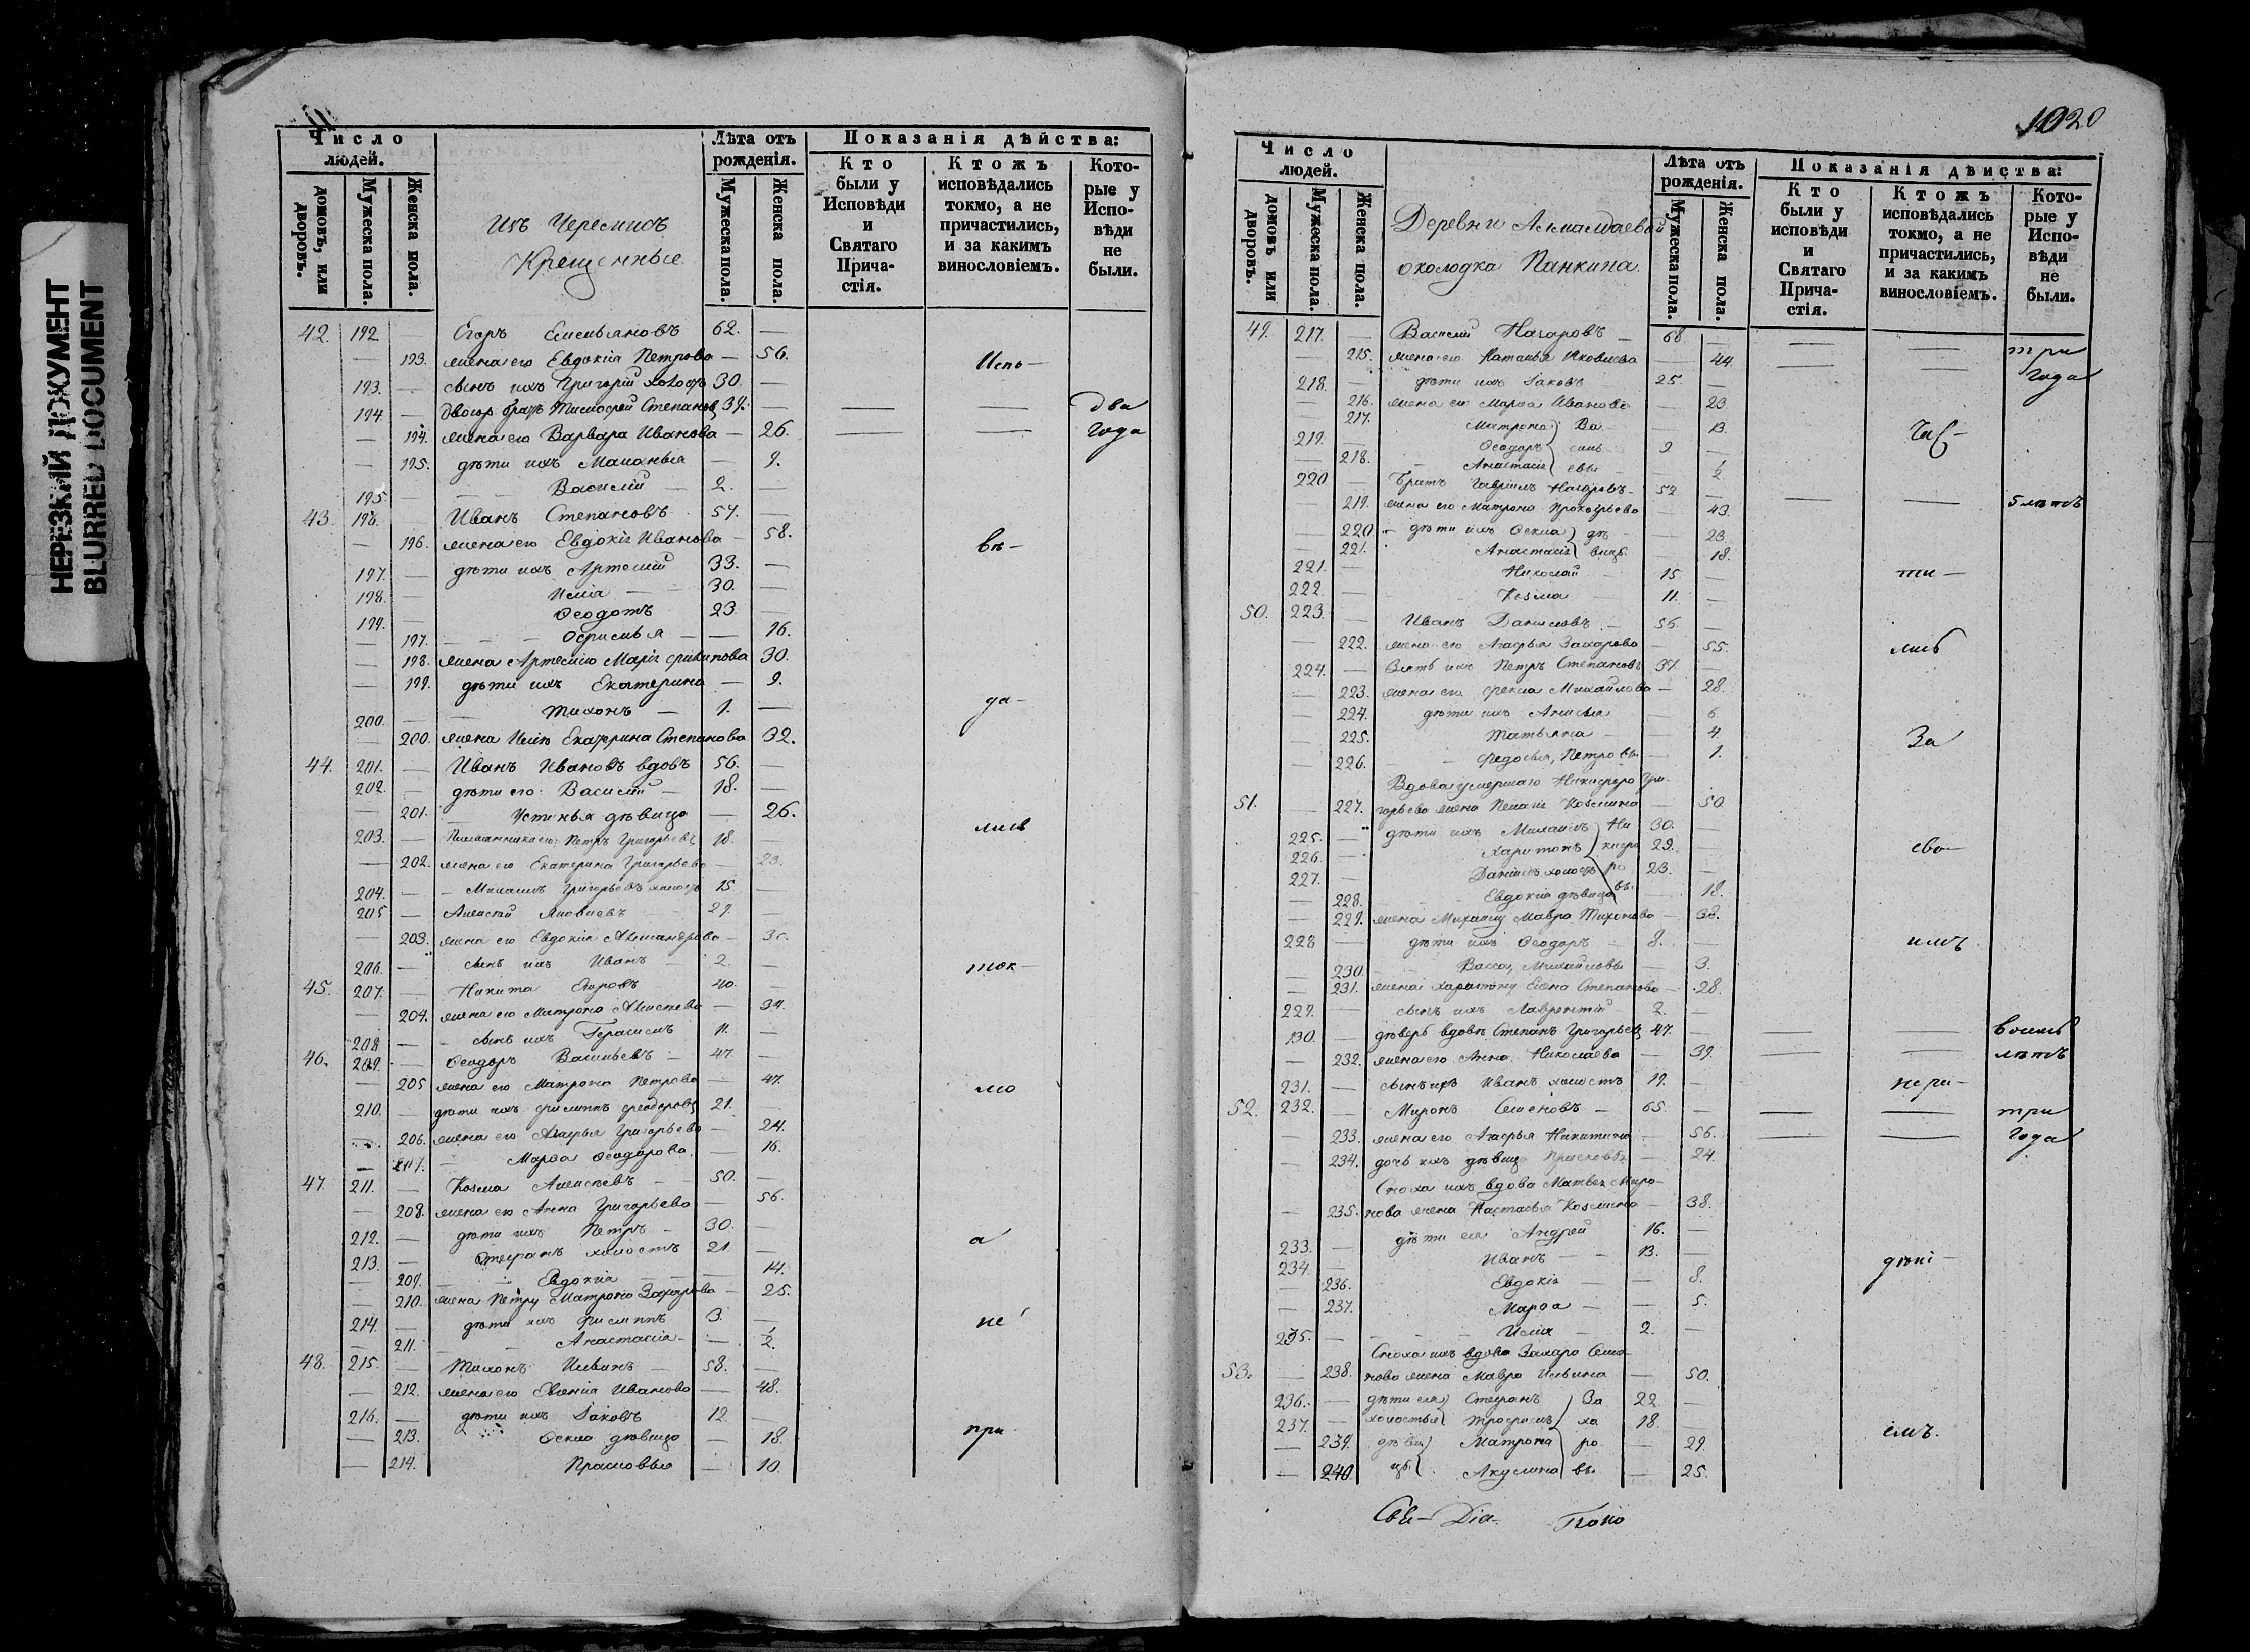 НЕРЕЗКИЙ ДОКУМЕНТ
BLURRED DOCUMENT
Число людей.
домовъ, или дворовъ.
Мужеска пола.
Женска пола.
Изъ Черемисъ
Крещенные
Лѣта отъ рожденія.
Мужеска пола.
Женска пола.
Показанія дѣйства:
Кто были у Исповѣди и Святаго Прича-стія.
Ктожъ исповѣдались токмо, а не причастились, и за какимъ винословіемъ.
Кото-рые у Испо-вѣди не были.
42. 192. — Егоръ Емельяновъ 62. —
— 193. жена его Евдокія Петрова — 56. Испо-
193. — сынъ ихъ Григорій холостъ 30. —
194. — двоюр. братъ Тимофей Степановъ 34. — — — два
— 194. жена его Варвара Иванова — 26. — — года
— 195. дѣти ихъ Маланья — 9.
195. — Василій — 2. —
43. 196. — Иванъ Степановъ 57. —
— 196. жена его Евдокія Иванова — 58. вѣ-
197. — дѣти ихъ Артемій 33. —
198. — Илія — 30. —
199. — Ѳеодотъ 23 —
— 197. — Ѳфимья — — 16.
— 198. жена Артемію Марія Филипова 30.
— 199. дѣти ихъ Екатерина — 9.
200. — Тихонъ — 1. — да-
— 200. жена Иліи Екатерина Степанова 32.
44. 201. — Иванъ Ивановъ вдовъ 56. —
202. — дѣти его: Василій — 18. —
— 201. — Устинья дѣвица — 26. лись
203. — Племянники его: Петръ Григорьевъ 18. —
— 202. жена его Екатерина Григорьева — 23.
204. — — Михаилъ Григорьевъ холостъ 15 —
205 — Алексѣй Яковлевъ 29. —
— 203. жена его Евдокія Александрова — 30.
206. — сынъ ихъ Иванъ — 2. — ток-
45. 207. — Никита Егоровъ 40. —
— 204. жена его Матрона Алексѣева — 34.
208 — — сынъ ихъ Герасимъ 11. —
46. 209. — Ѳеодоръ Васильевъ — 47. —
— 205 жена его Матрона Петрова — 47. мо
210. — дѣти ихъ Филиппъ Феодоровъ 21. —
— 206. жена его Агафья Григорьева — 24.
— 207. — Марѳа Ѳеодорова — 16.
47. 211. — Козма Алексѣевъ — 50. —
— 208. жена его Анна Григорьева — 56.
212. — дѣти ихъ Петръ — 30. — а
213. — Стефанъ холостъ 21. —
— 209. — Евдокія — — 14.
— 210. жена Петру Матрона Захарова — 25.
214. — дѣти ихъ Филиппъ 3. — не
— 211. — Анастасія — — 1/2.
48. 215. — Тихонъ Ильинъ — 58. —
— 212. жена его Евгенія Иванова — 48.
216. — дѣти ихъ Іаковъ 12. —
— 213. Ѳекла дѣвица — 18. при
— 214. Прасковья — 10.
1020
Число людей.
домовъ или дворовъ.
Мужеска пола.
Женска пола.
Деревни Алмамаевой
околодка Панкина.
Лѣта отъ рожденія.
Мужеска пола.
Женска пола.
Показанія дѣйства:
Кто были у исповѣди и Святаго Прича-стія.
Ктожъ исповѣдались токмо, а не причастились, и за какимъ винословіемъ.
Кото-рые у Испо-вѣди не были.
49. 217. — Василій Назаровъ — 68. — — — три
— 215. жена его Наталья Яковлева — 44. — — года
218. — дѣти ихъ Іаковъ 25. —
— 216. жена его Марѳа Иванова — 23.
— 217. Матрона Ва- — 13. час-
219. — Ѳеодоръ силь 9 —
— 218. — Анастасія евы — 1/2
220 — Братъ Гавріилъ Назаровъ 52. — — — 5 лѣтъ
— 219. жена его Матрона Прокофьева — 43.
— 220. дѣти ихъ Ѳекла дѣ — 23.
— 221. Анастасія вицы — 18.
221. — Николай — 15. — ти-
222. — Козма — 11. —
50. 223. — Иванъ Даниловъ — 56. —
— 222. жена его Агафья Захарова — 55. лись
224. — Зять ихъ Петръ Степановъ 37. —
— 223. жена его Фекла Михайлова — 28.
— 224. дѣти ихъ Анисья — 6.
— 225. Татьяна — 4. За
— 226. Федосья, Петровы — 1.
Вдова умершаго Никифора Гри-
51. — 227. горьева жена Пелагія Козмина — 50.
225. — дѣти ихъ Михаилъ Ни 30. —
226. — Харитонъ кифо 29. — сво-
227. — Даніилъ холостъ ро 23. —
— 228. — Евдокія дѣвица вы — 18.
— 229. жена Михаилу Мавра Тихонова — 38.
228 — дѣти ихъ Ѳеодоръ 8. — имъ
— 230. Васса, Михайловы — 3.
— 231. жена Харитону Елена Степанова — 28.
229. — сынъ ихъ Лаврентій 2. —
130. — дѣверь вдовѣ Степанъ Григорьевъ 47. — — — восемь
— 232. жена его Анна Николаева — 39. — — лѣтъ
231. — сынъ ихъ Иванъ холостъ 19. — нера-
52. 232. — Миронъ Семеновъ — 65. — — — три
— 233. жена его Агафья Никитина — 56. — — года
— 234. дочь ихъ дѣвица Прасковья — 24.
Сноха ихъ вдова Матвея Миро-
— 235. нова жена Настасья Козмина — 38.
233. — дѣти ея Андрей 16. —
234. — Иванъ — 13. — дѣні-
— 236. Евдокія — — 8.
— 237. Марѳа — — 5.
235. — Илія — 2. —
Сноха ихъ вдова Захара Семе-
53. — 238. нова жена Мавра Ильина — 50.
236. — дѣти ея Стефанъ За 22 —
237. — холостыя Трофимъ ха 18. — емъ.
— 239. дѣви Матрона ро — 29.
— 240. цы Акулина вы — 25.
Свя- Діа- Поно